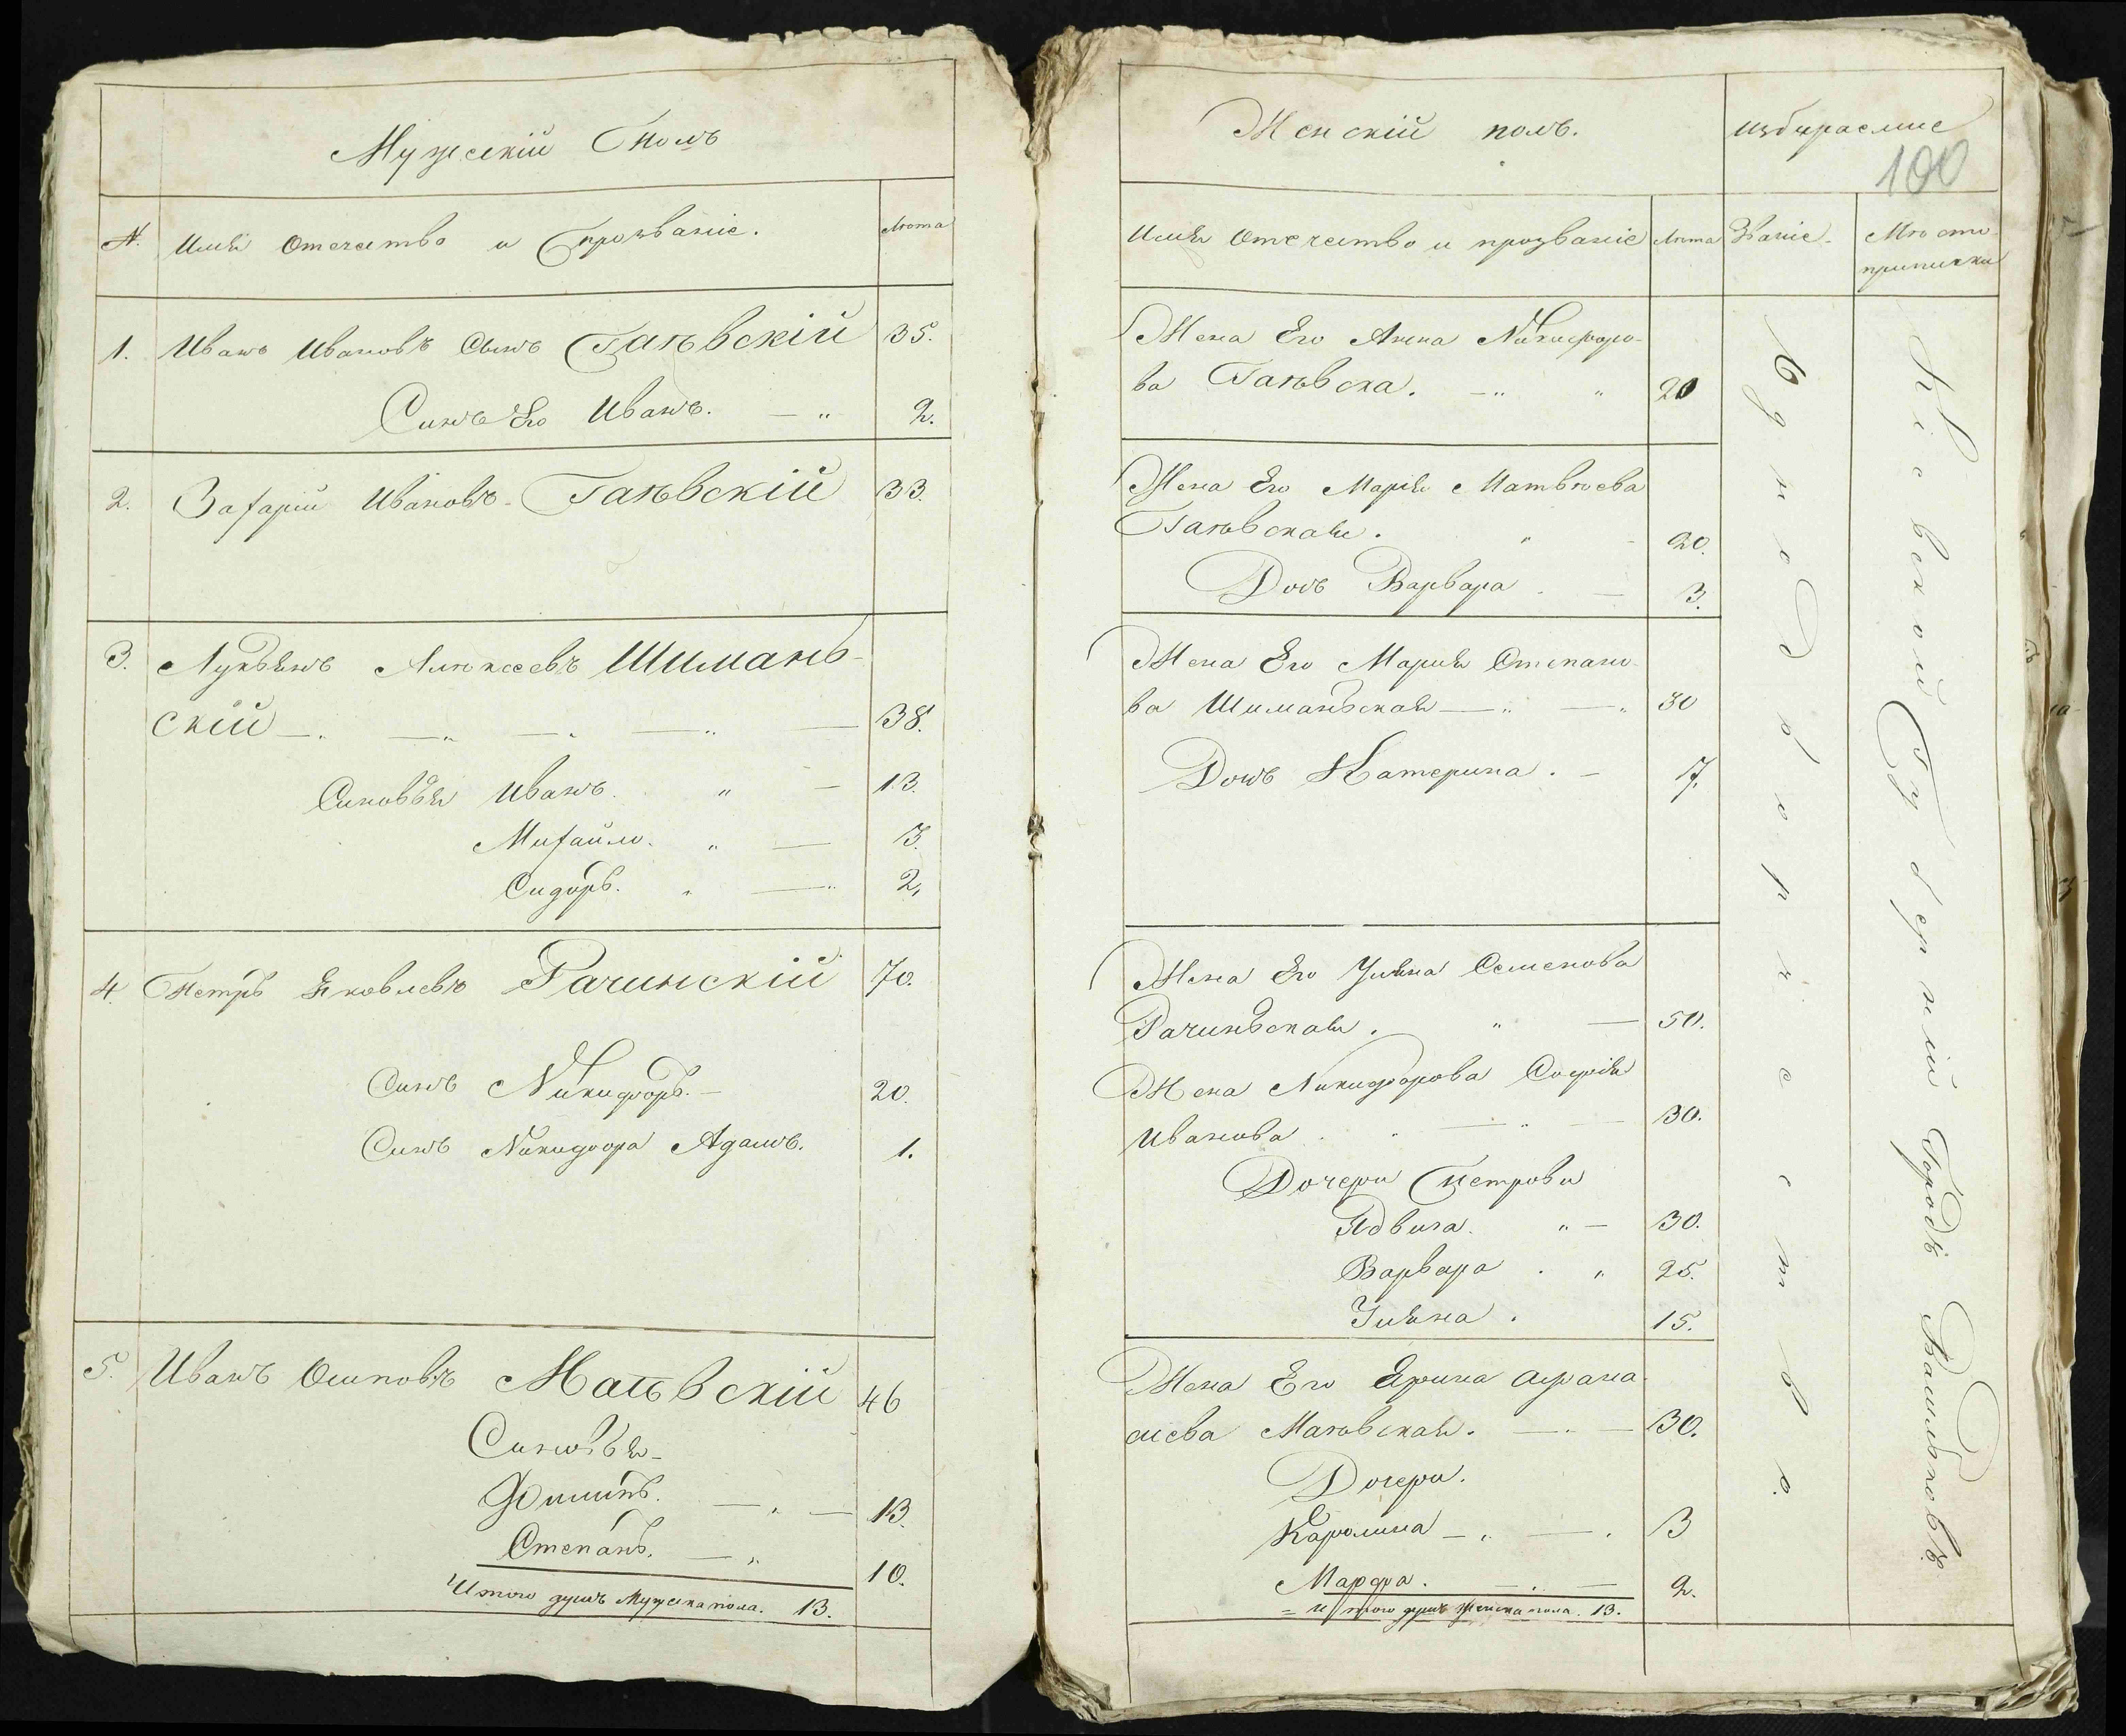 Мужескій Полъ
№. Имя Отечество и Прозваніе. Лѣта
1. Иванъ Ивановъ Сынъ Гаѣвскій 35.
Синъ Его Иванъ. 2.
2. Захарій Ивановъ Гаѣвскій 33.
3. Лукьянъ Алѣксеевъ Шимань-
скій 38.
Синовья Иванъ. 13.
Михайло. 3.
Сидоръ. 2.
4. Петръ Яковлевъ Рачинскій 70.
Синъ Никифоръ. 20.
Синъ Никифора Адамъ. 1.
5. Иванъ Осиповъ Маѣвскій 46
Синовья
Филипъ. 13.
Степанъ. 10.
Итого душъ Мужеска пола. 13.
Женскій полъ. избираемие
100
Имя Отечество и прозваніе Лѣта Званіе. Мѣсто
приписки
Жена Его Анна Никифоро-
ва Гаѣвска. 20
Жена Его Марія Матвѣева
Гаѣвская. 20.
Дочь Варвара 3.
Жена Его Мария Степано-
ва Шиманьская 30
Дочь Катерина. 7.
Жена Его Уляна Семенова
Рачиньская. 50.
Жена Никифорова Софія
Иванова 30.
Дочери Петрови
Ядвига. 30.
Варвара 25.
Уляна. 15.
Жена Его Ярина Афана-
сиева Маѣвская. 30.
Дочери.
Каролина 3
Марфа. 2.
Итого душъ Женска пола. 13.
Однодворчество.
Кіевской Губерніи Городѣ Васильковѣ.